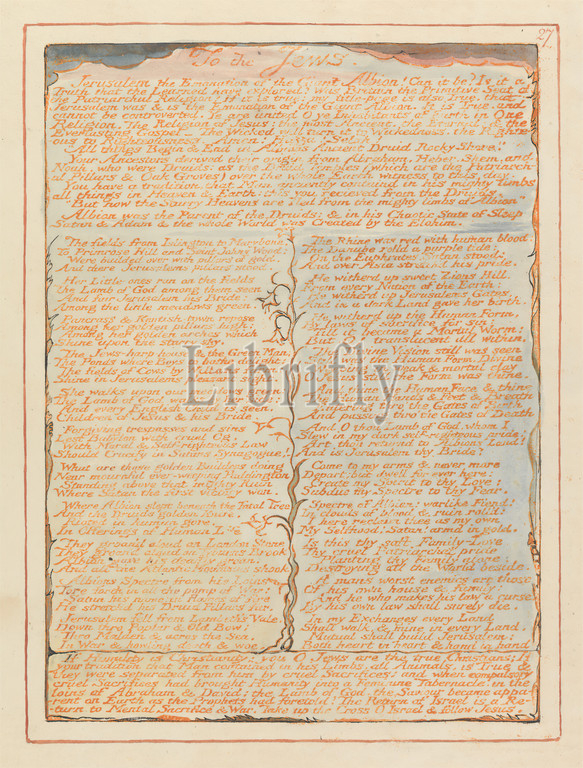 27
To the Jews.
Jerusalem the Emanation of the Giant Albion! Can it be? Is it a
Truth that the Learned have explored? Was Britain the Primitive Seat of
the Patriarchal Religion? If it is true: my title-page is also True, that
Jerusalem was & is the Emanation of the Giant Albion. It is True, and
cannot be controverted. Ye are united O ye Inhabitants of Earth in One
Religion. The Religion of Jesus: the most Ancient, the Eternal: & the
Everlasting Gospel. The Wicked will turn it to Wickedness, the Righte-
ous to Righteousness. Amen! Huzza! Selah!
All things Begin & End in Albions Ancient Druid Rocky Shore.
Your Ancestors derived their origin from Abraham, Heber, Shem, and
Noah, who were Druids: as the Druid Temples (which are the Patriarch-
al Pillars & Oak Groves) over the whole Earth witness to this day.
You have a tradition, that Man anciently containd in his mighty limbs
all things in Heaven & Earth: this you recieved from the Druids.
But now the Starry Heavens are fled from the mighty limbs of Albion
Albion was the Parent of the Druids; & in his Chaotic State of Sleep
Satan & Adam & the whole World was Created by the Elohim.
The fields from Islington to Marybone,
To Primrose Hill and Saint Johns Wood:
Were builded over with pillars of gold,
And there Jerusalems pillars stood.
Her Little-ones ran on the fields
The Lamb of God among them seen
And fair Jerusalem his Bride:
Among the little meadows green.
Pancrass & Kentish-town repose
Among her golden pillars high:
Among her golden arches which
Shine upon the starry sky.
The Jews-harp-house & the Green Man;
The Ponds where Boys to bathe delight:
The fields of Cows by Willans farm:
Shine in Jerusalems pleasant sight.
She walks upon our meadows green:
The Lamb of God walks by her side:
And every English Child is seen,
Children of Jesus & his Bride,
Forgiving trespasses and sins
Lest Babylon with cruel Og,
With Moral & Self-righteous Law
Should Crucify in Satans Synagogue!
What are those golden Builders doing
Near mournful ever-weeping Paddington
Standing above that mighty Ruin
Where Satan the first victory won.
Where Albion slept beneath the Fatal Tree
And the Druids golden Knife,
Rioted in human gore,
In Offerings of Human Life
They groand aloud on London Stone
They groand aloud on Tyburns Brook
Albion gave his deadly groan,
And all the Atlantic Mountains shook
Albions Spectre from his Loins
Tore forth in all the pomp of War!
Satan his name: in flames of fire
He stretchd his Druid Pillars far.
Jerusalem fell from Lambeth's Vale,
Down thro Poplar & Old Bow;
Thro Malden & acros the Sea,
In War & howling death & woe.
The Rhine was red with human blood:
The Danube rolld a purple tide:
On the Euphrates Satan stood:
And over Asia stretch'd his pride.
He witherd up sweet Zions Hill,
From every Nation of the Earth:
He witherd up Jerusalems Gates,
And in a dark Land gave her birth.
He witherd up the Human Form,
By laws of sacrifice for sin:
Till it became a Mortal Worm:
But O! translucent all within.
The Divine Vision still was seen
Still was the Human Form, Divine
Weeping in weak & mortal clay
O Jesus still the Form was thine.
And thine the Human Face & thine
The Human Hands & Feet & Breath
Entering thro' the Gates of Birth
And passing thro' the Gates of Death
And O thou Lamb of God, whom I
Slew in my dark self-righteous pride:
Art thou return'd to Albions Land!
And is Jerusalem thy Bride?
Come to my arms & never more
Depart; but dwell for ever here:
Create my Spirit to thy Love:
Subdue my Spectre to thy Fear.
Spectre of Albion! warlike Fiend!
In clouds of blood & ruin roll'd:
I here reclaim thee as my own
My Selfhood! Satan! armd in gold.
Is this thy soft Family-Love
Thy cruel Patriarchal pride
Planting thy Family alone,
Destroying all the World beside.
A mans worst enemies are those
Of his own house & family;
And he who makes his law a curse,
By his own law shall surely die.
In my Exchanges every Land
Shall walk, & mine in every Land,
Mutual shall build Jerusalem:
Both heart in heart & hand in hand.
If Humility is Christianity; you O Jews are the true Christians; If
your tradition that Man contained in his Limbs, all Animals, is True &
they were separated from him by cruel Sacrifices: and when compulsory
cruel Sacrifices had brought Humanity into a Feminine Tabernacle, in the
loins of Abraham & David: the Lamb of God, the Saviour became appa-
rent on Earth as the Prophets had foretold? The Return of Israel is a Re-
turn to Mental Sacrifice & War. Take up the Cross O Israel & follow Jesus.
Librifly